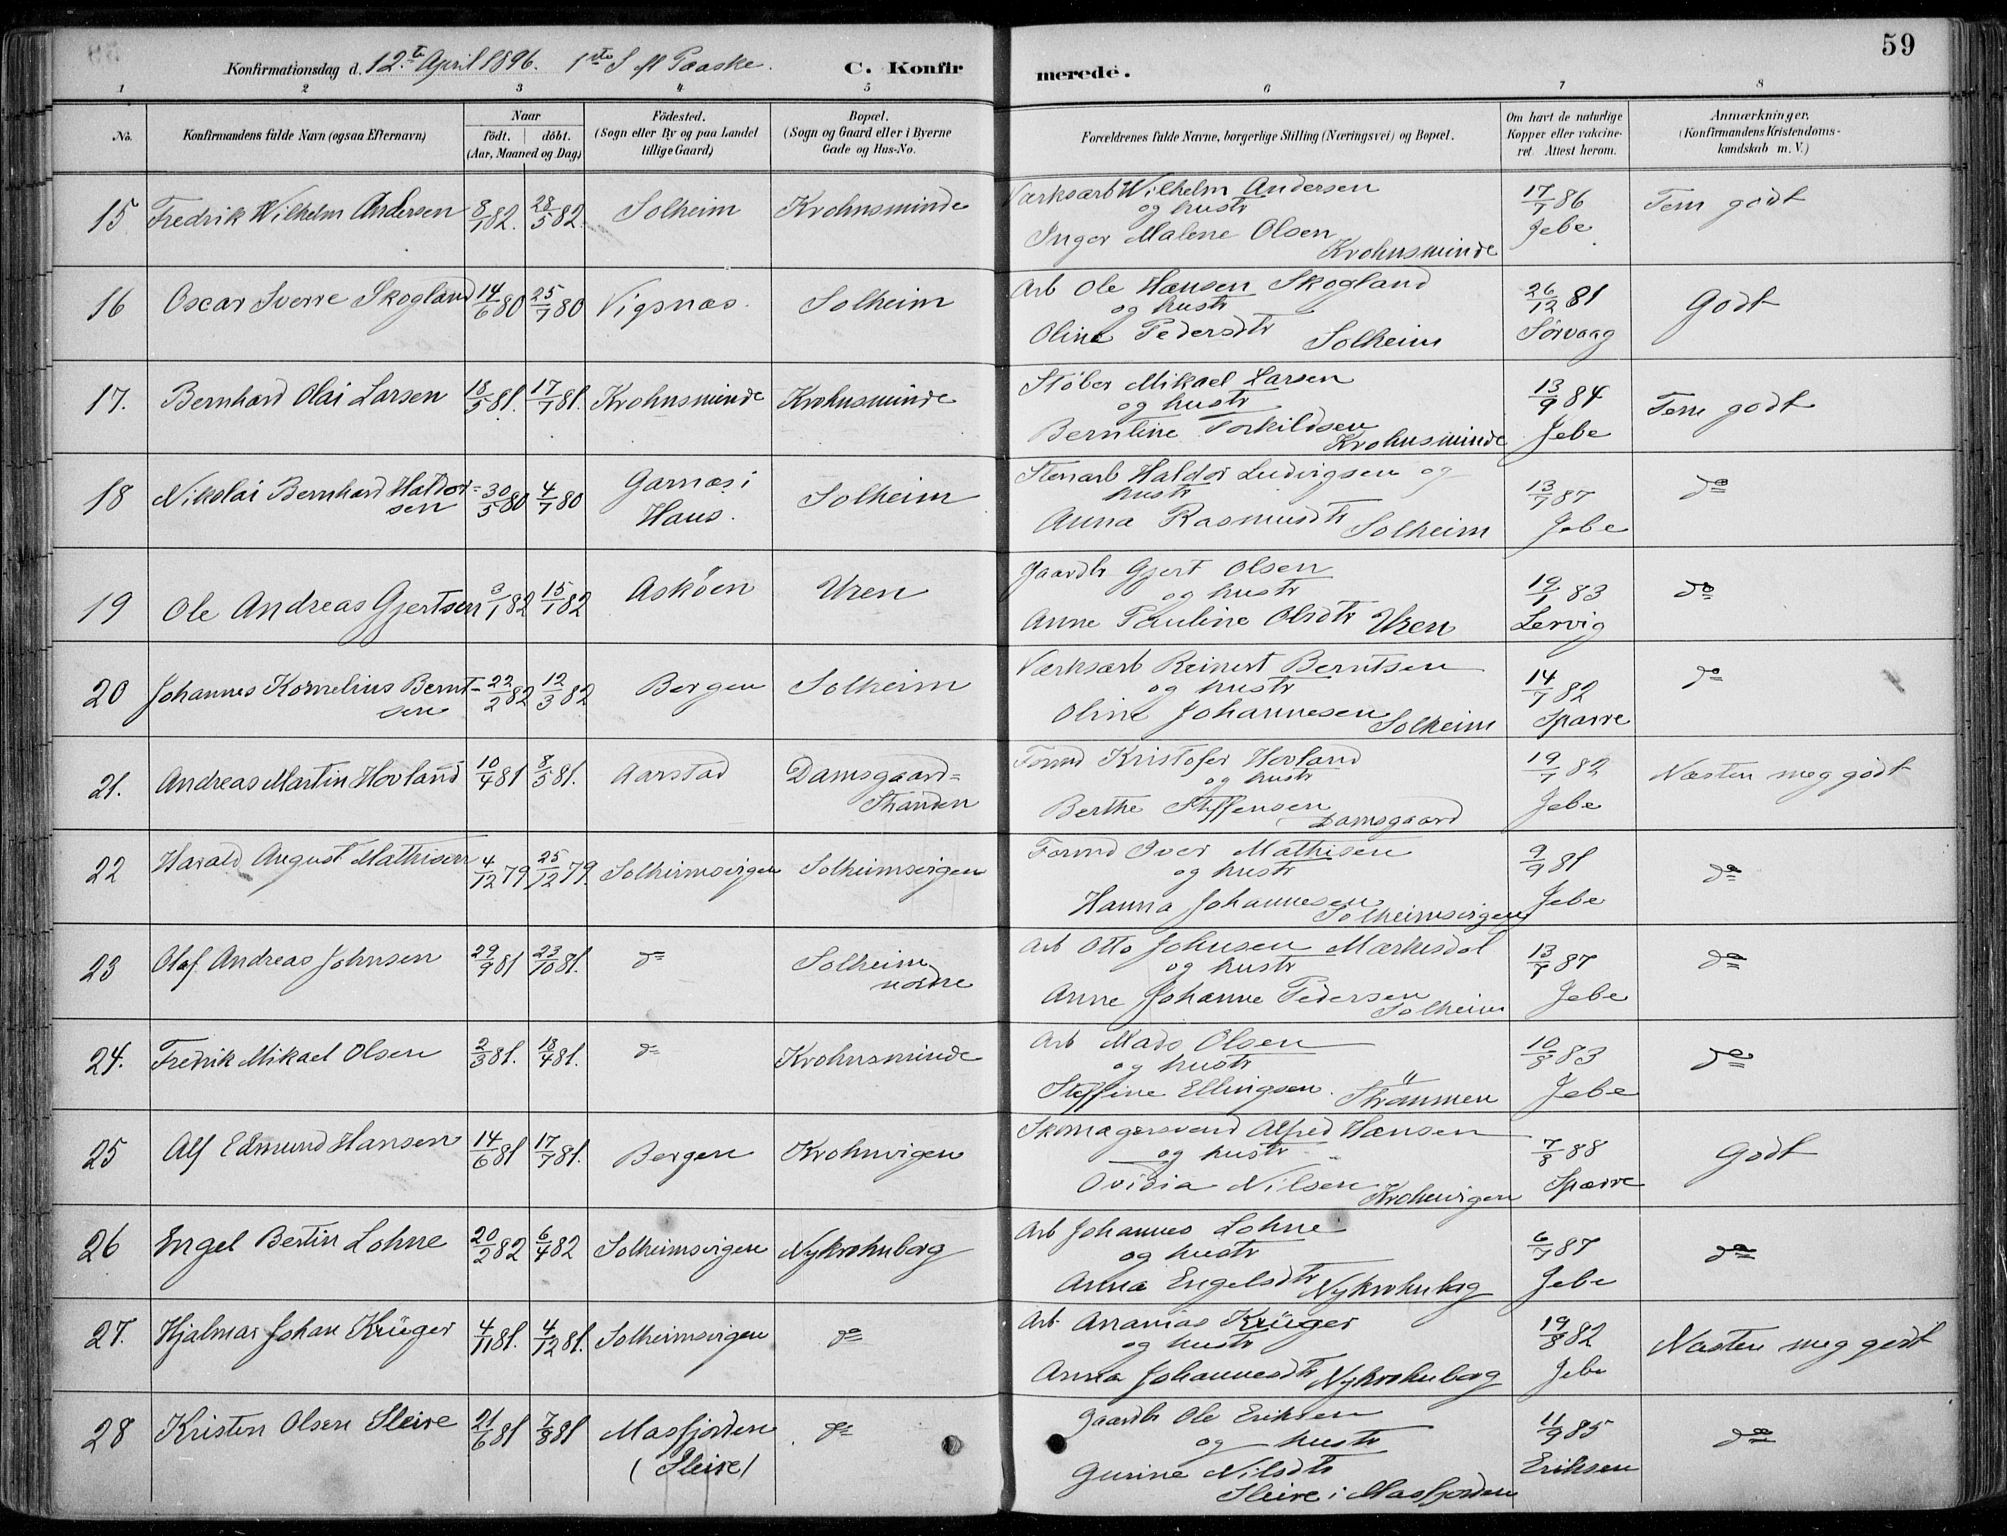 59
Konfirmationsdag d. 12te April 1896. 1ste S. efter Paaske.
C. Konfirmerede.
1 2 3 4 5 6 7 8
No.
Konfirmandens fulde Navn (ogsaa Efternavn)
Naar
født. døbt.
(Aar, Maaned og Dag)
Fødested.
(Sogn eller By og paa Landet
tillige Gaard)
Bopæl.
(Sogn og Gaard eller i Byerne
Gade og Hus-No.
Forældrenes fulde Navne, borgerlige Stilling (Næringsvei) og Bopæl.
Om havt de naturlige
Kopper eller vakcine-
ret. Attest herom.
Anmærkninger.
(Konfirmandens Kristendoms-
kundskab m. V.)
15 Fredrik Wilhelm Andersen 8/1 82. 28/5 82. Solheim Krohnsminde Værksarb Wilhelm Andersen 17/7 86 Tem godt
og hustr Jebe
Inger Malene Olsen
Krohnsminde
16 Oscar Sverre Skogland 14/6 80 25/7 80 Vigsnæs Solheim Arb Ole Hansen Skogland 26/12 81 Godt
og hustr
Oline Pedersdtr Solheim Sørvaag
17. Bernhard Olai Larsen 18/5 81. 17/7 81. Krohnsminde Krohnsminde Støber Mikael Larsen 13/9 84 Tem godt
og hustr
Berntine Torkildsen Krohnsminde Jebe
18 Nikolai Bernhard Haldor- 30/5 80 4/7 80 Garnæs i Solheim Stenarb Haldor Ludvigsen og 13/7 87 do
sen Haus. hustr
Anna Rasmusdtr Solheim Jebe
19 Ole Andreas Gjertsen 3/1 82 15/1 82 Askøen Uren Gaardbr Gjert Olsen 19/1 83 do
og hustr
Anne Pauline Olsdtr Uren Lervig
20 Johannes Kornelius Bernt- 22/2 82 12/3 82 Bergen Solheim Værksarb Reinert Berntsen 14/7 82 do
sen og hustr
Oline Johannesen Solheim Sparre
21. Andreas Martin Hovland 10/4 81 8/5 81. Aarstad Damsgaard= Formd Kristofer Hovland 19/7 82 Næsten meg godt
Stranden og hustr
Berthe Steffensen Damsgaard Jebe
22 Harald August Mathisen 4/12 79 25/12 79. Solheimsvigen Solheimsvigen Formd Iver Mathisen 9/9 81 do
og hustr
Hanna Johannesen Solheimsvigen Jebe
23 Olaf Andreas Johnsen 29/9 81 23/10 81. do Solheim Arb Otto Johnsen Markusdal 13/7 87 do
nordre og hustr
Anne Johanne Pedersen Solheim Jebe
24. Fredrik Mikael Olsen 2/3 81. 18/4 81. do Krohnsminde Arb Mads Olsen 10/8 83 do
og hustr
Steffine Ellingsen Strømmen Jebe
25 Alf Edmund Hansen 14/6 81 17/7 81. Bergen Krohnvigen Skomagersvend Alfred Hansen 7/8 88 Godt
og hustr
Ovidia Nilsen Krohnvigen Sparre
26 Engel Bertin Lohne 20/2 82 6/4 82 Solheimsvigen Nykrohnborg Arb Johannes Lohne 6/7 87 do
og hustr
Anna Engelsdtr Nykrohnborg Jebe
27. Hjalmar Johan Krüger 4/11 81. 4/12 81. Solheimsvigen do Arb Ananias Krüger 19/8 82 Næsten meg godt
og hustr
Anna Johannesdtr Nykrohnborg Jebe
28 Kristen Olsen Sleire 21/6 81 7/8 81 Masfjorden do Gaardbr Ole Eriksen 11/9 85 do
(Sleire) og hustr
Gurine Nilsdtr Eriksen
Sleire i Masfjorden